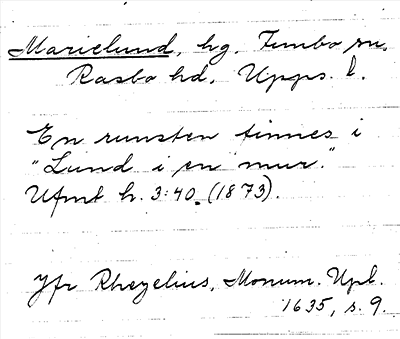 Marielund, hg. Funbo sn,
Rasbo hd, Upps. l.
En runsten finnes i
"Lund i en mur."
Ufmt h. 3:40. (1873).
Jfr Rhezelius, Monum. Upl.
1635, s. 9.